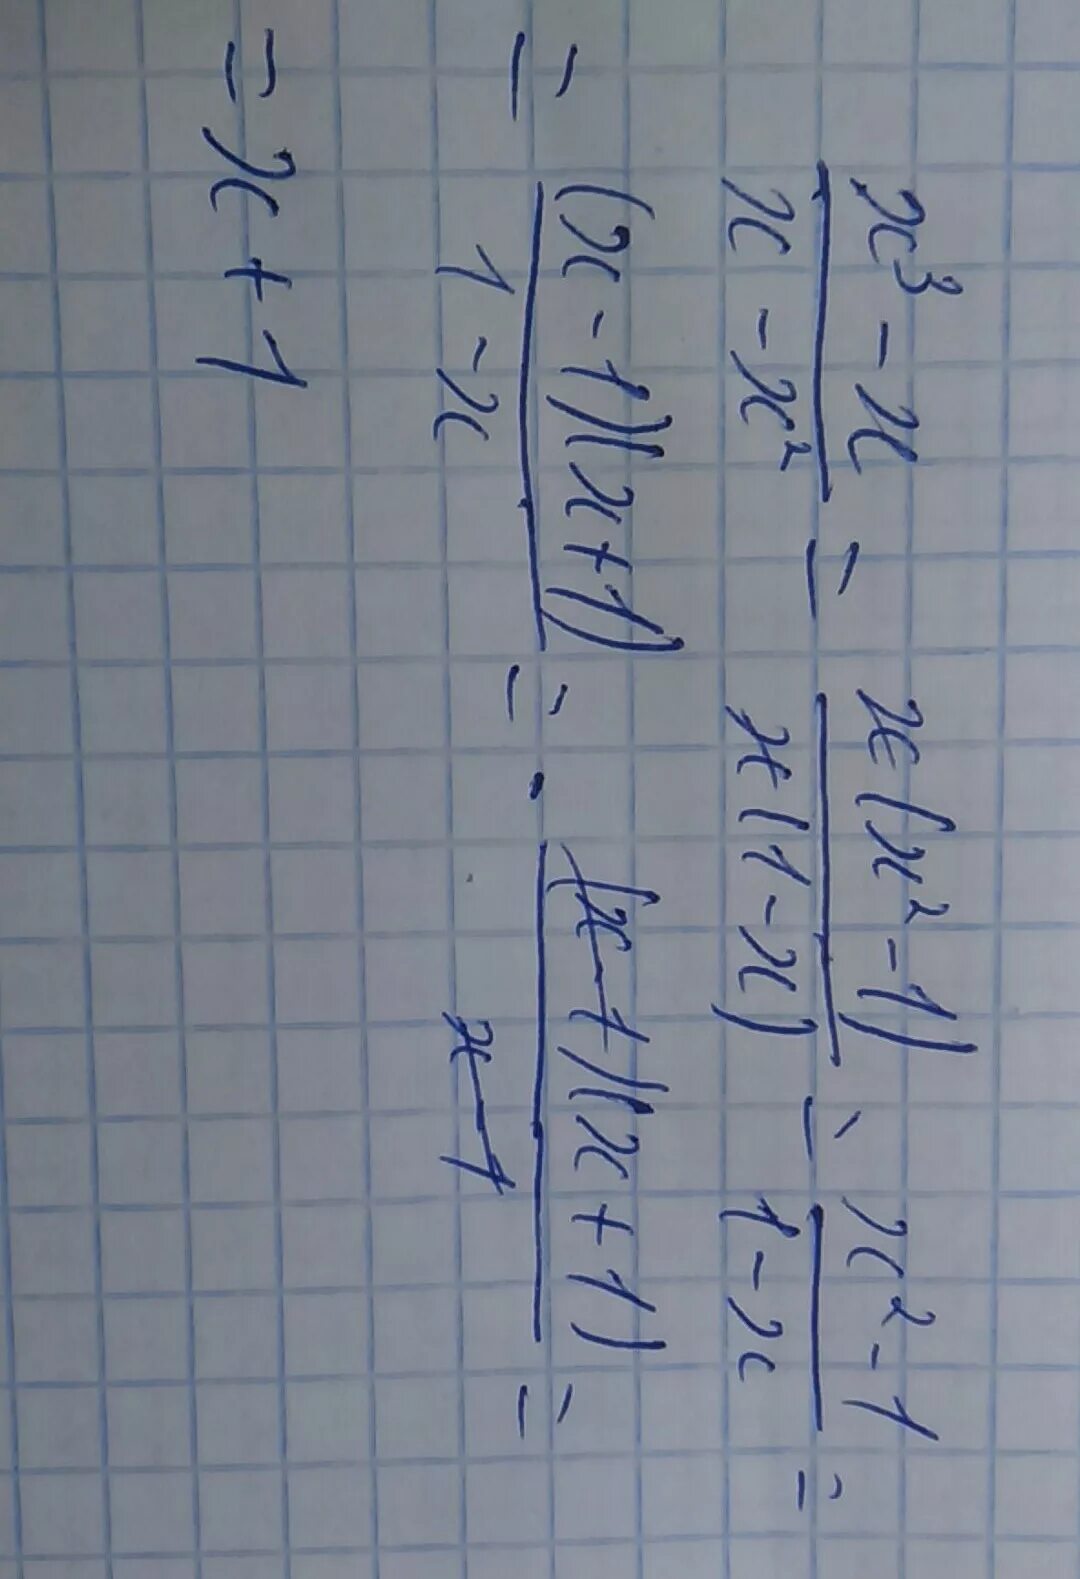 (x³ - x)/(x - x²) = x(x² - 1)/x(1 - x) = (x² - 1)/(1 - x) =
= (x - 1)(x + 1)/(1 - x) = · (x - 1)(x + 1)/(x - 1) =
= x + 1